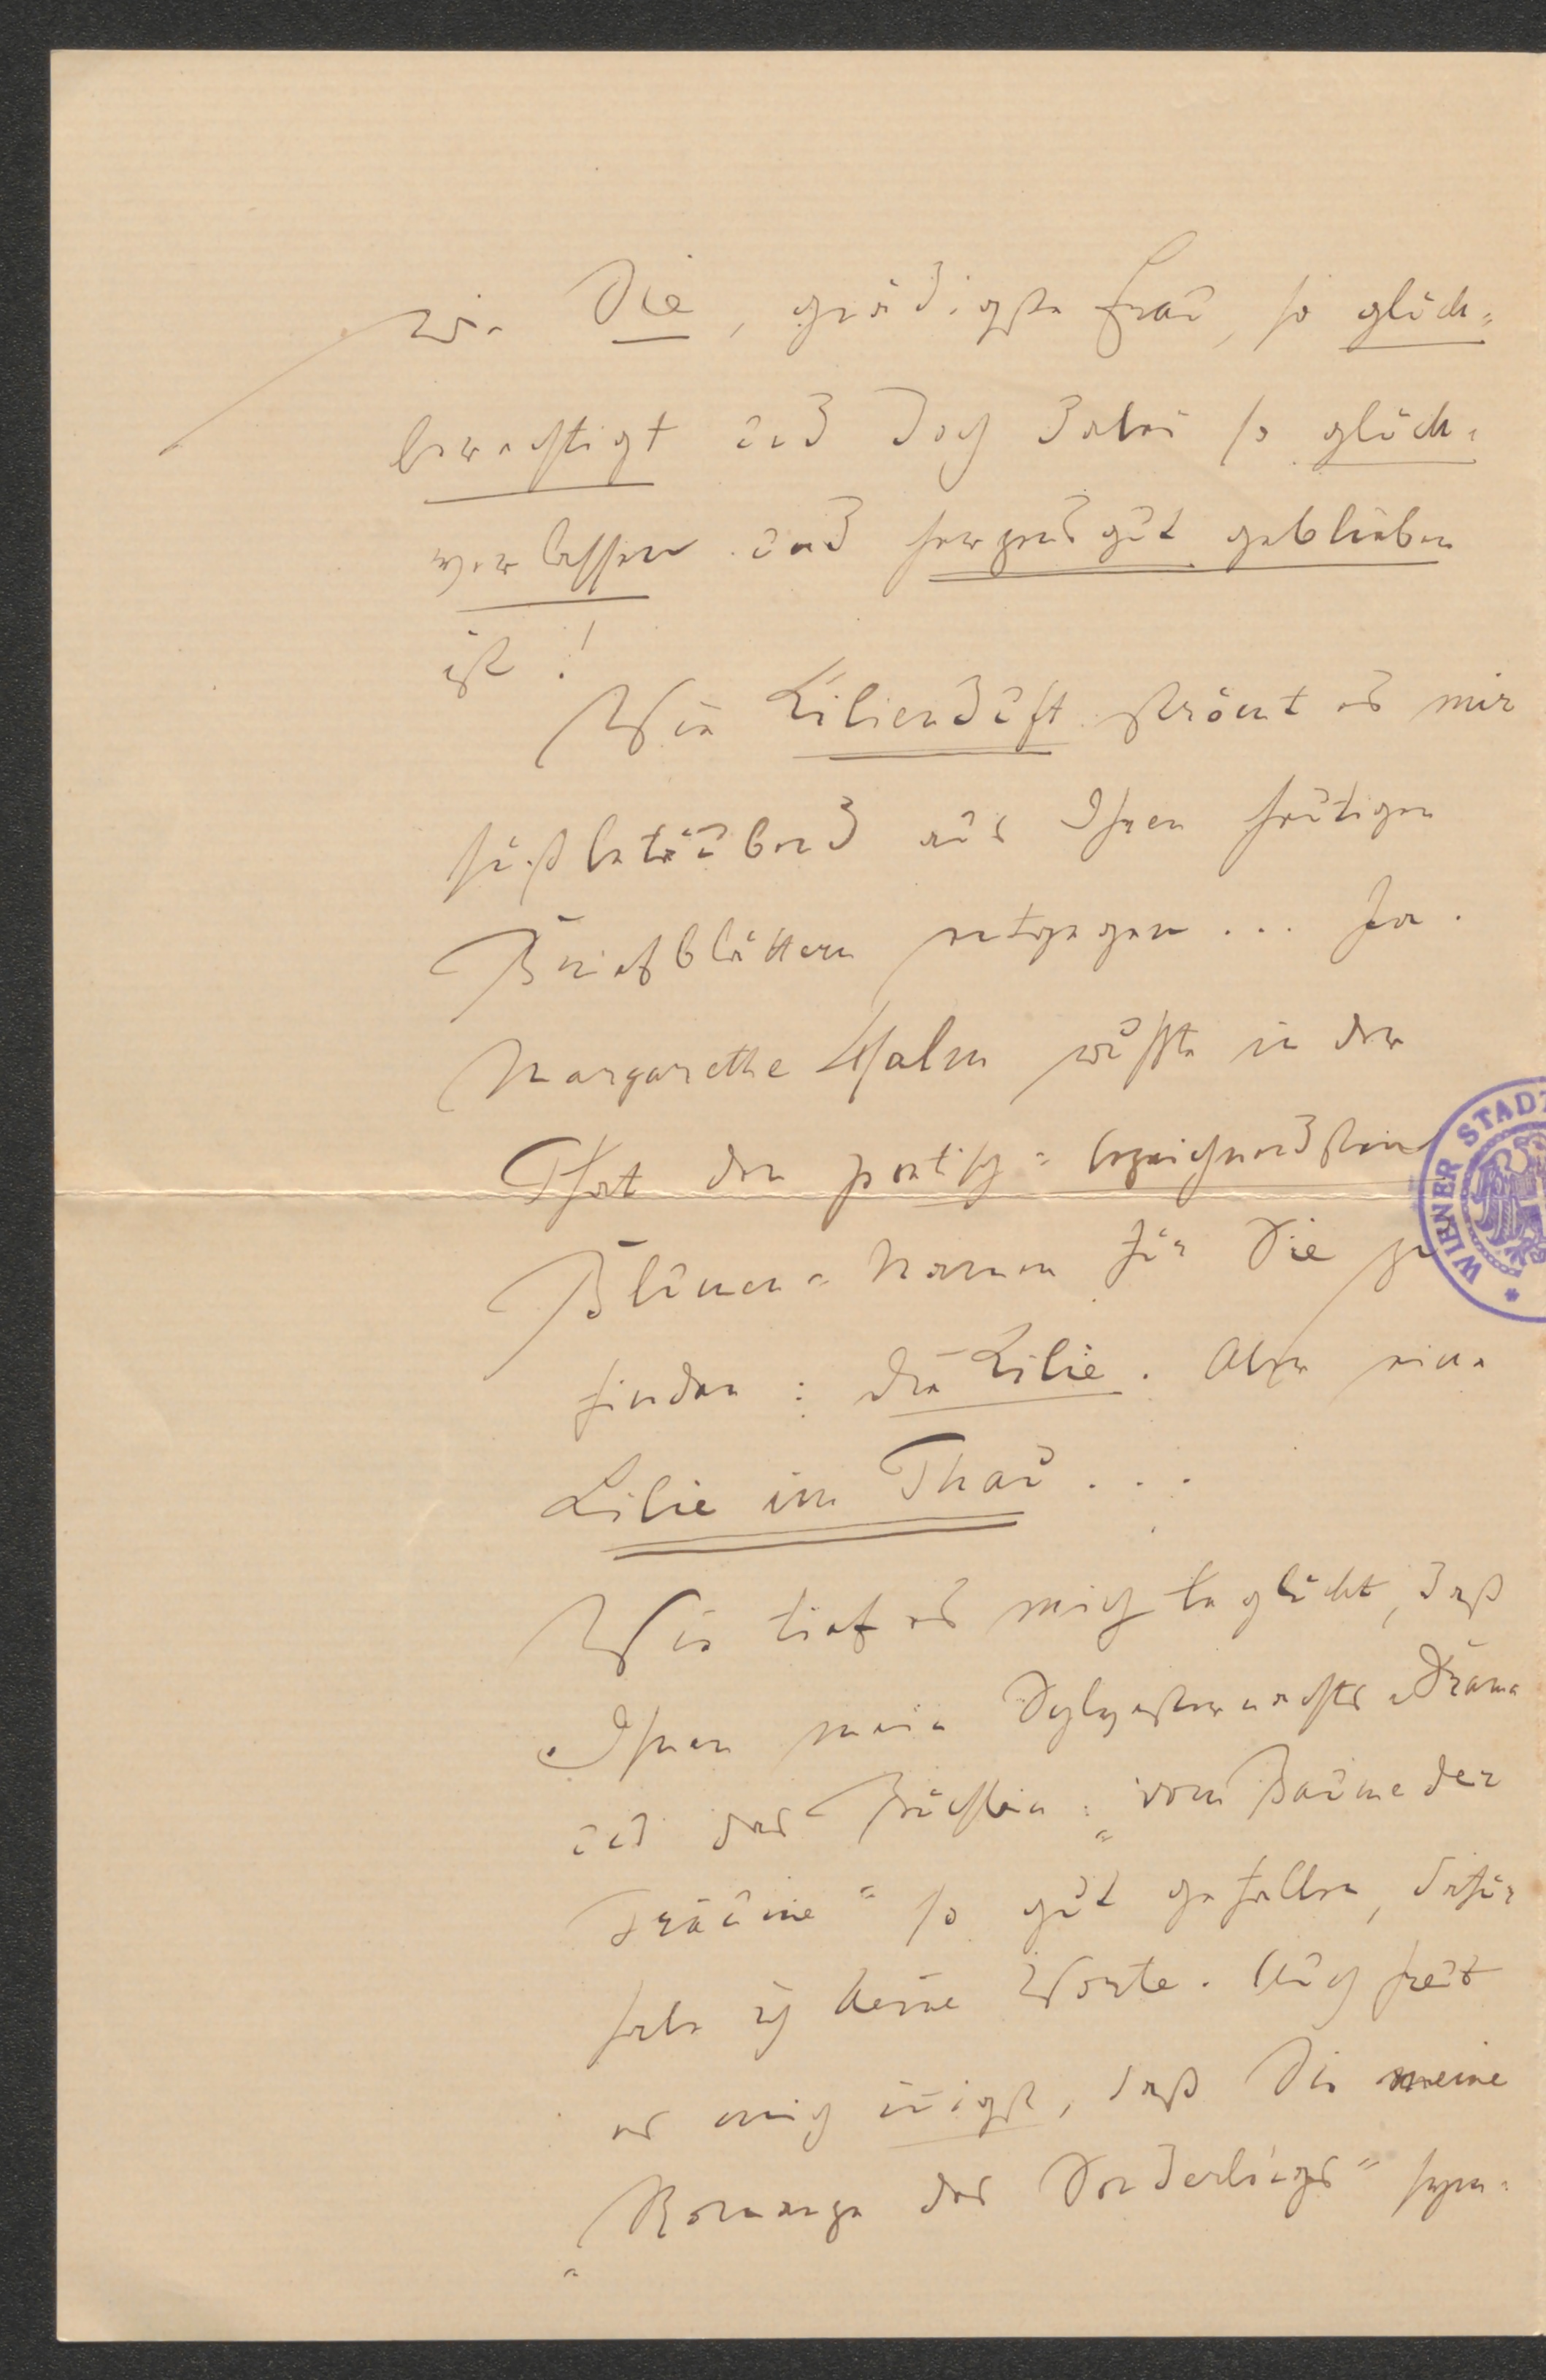 wie Sie, gnädigste Frau, so glück-
berechtigt und doch dabei so glück-
verlassen und herzensgut geblieben
ist!
Wie Lilienduft strömt es mir
süßbetäubend aus Ihren heutigen
Briefblättern entgegen... Ja.
Margarethe Halm wußte in der
That den poetisch-bezeichnendsten
Blumen-Namen für Sie zu
finden: die Lilie. Aber eine
Lilie im Thau...
Wie tief es mich beglückt, daß
Ihnen mein Sylvesternachts-Drama
und das Büchlein: „vom Baume der
Träume“ so gut gefallen, dafür
habe ich keine Worte. Auch freut
es mich innigst, daß Sie meine
„Romanze des Sonderlings“ sym-
WIENER STADT